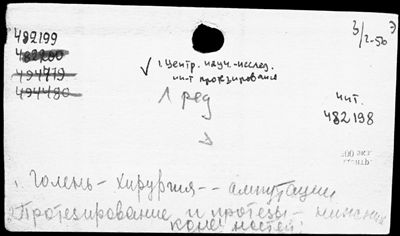 482199
482200
494779
494480
3/2-50 Э
√ 1. Центр. науч.-исслед.
ин-т протезирования
1 ред
чит.
482198
1. Голень - хирургия -- ампутации
2. Протезирование и протезы - нижних
конечностей